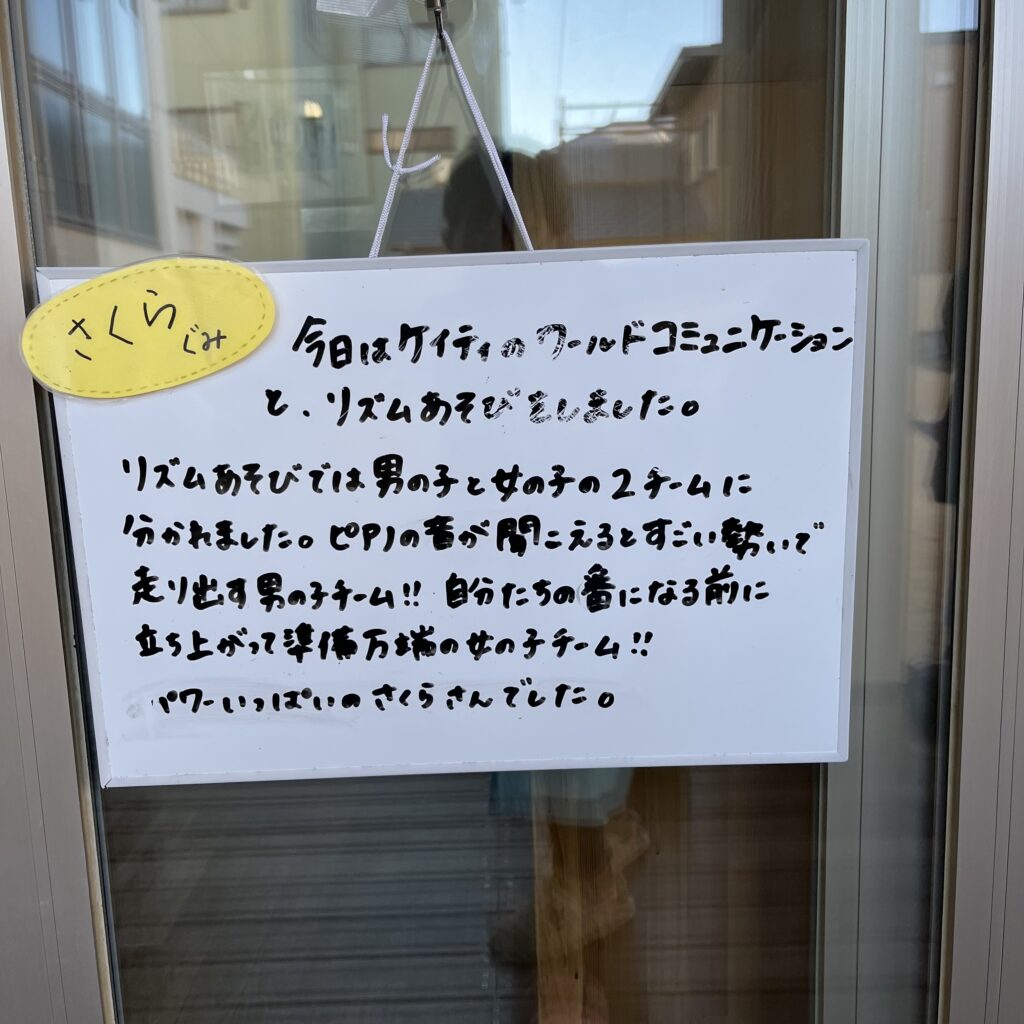 さくら
ぐみ
今日はケイティのワールドコミュニケーション
と、リズムあそびをしました。
リズムあそびでは男の子と女の子の2チームに
分かれました。ピアノの音が聞こえるとすごい勢いで
走り出す男の子チーム!! 自分たちの番になる前に
立ち上がって準備万端の女の子チーム!!
パワーいっぱいのさくらさんでした。